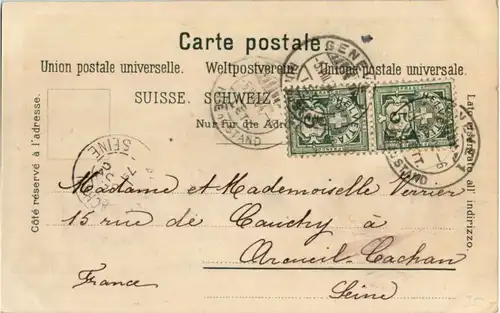 Carte postale
Union postale universelle. Weltpostverein. Unione postale universale.
SUISSE. SCHWEIZ.
Nur für die Adresse
Côté réservé à l'adresse.
Lato riservato all' indirizzo.
5
5
SEINE
Madame et Mademoiselle Verrier
15 rue de Cauchy à
Arcueil-Cachan
France Seine